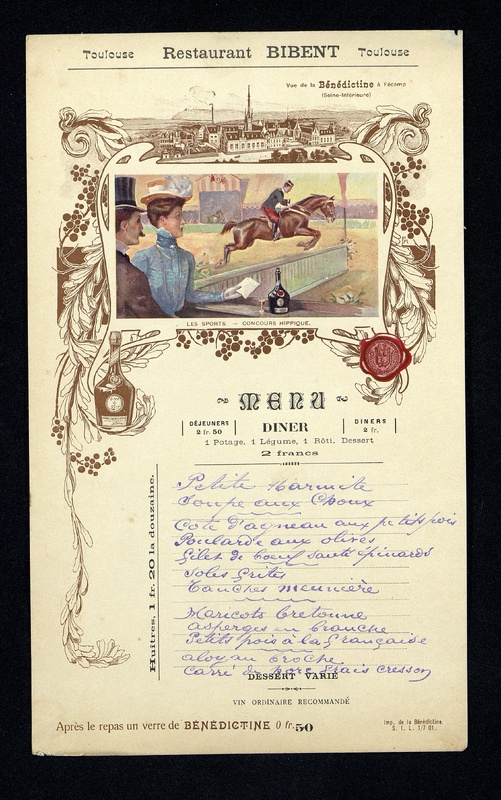 Toulouse Restaurant BIBENT Toulouse
Vue de la Bénédictine à Fécamp
(Seine-Inférieure)
LES SPORTS — CONCOURS HIPPIQUE.
MENU
DÉJEUNERS
2 fr. 50
DINER
DINERS
2 fr.
1 Potage, 1 Légume, 1 Rôti, Dessert
2 francs
Huîtres, 1 fr. 20 la douzaine.
Petite Marmite
Soupe aux Choux
Cote d'agneau aux petits pois
Poularde aux olives
Filet de boeuf sauté épinards
Soles frites
Tanches meunière
Haricots bretonne
Asperges en branche
Petits pois à la française
aloyau broche
Carré de porc frais cresson
DESSERT VARIÉ
VIN ORDINAIRE RECOMMANDÉ
Après le repas un verre de BÉNÉDICTINE 0 fr. 50
Imp. de la Bénédictine.
S. I. L. 1/7 01.